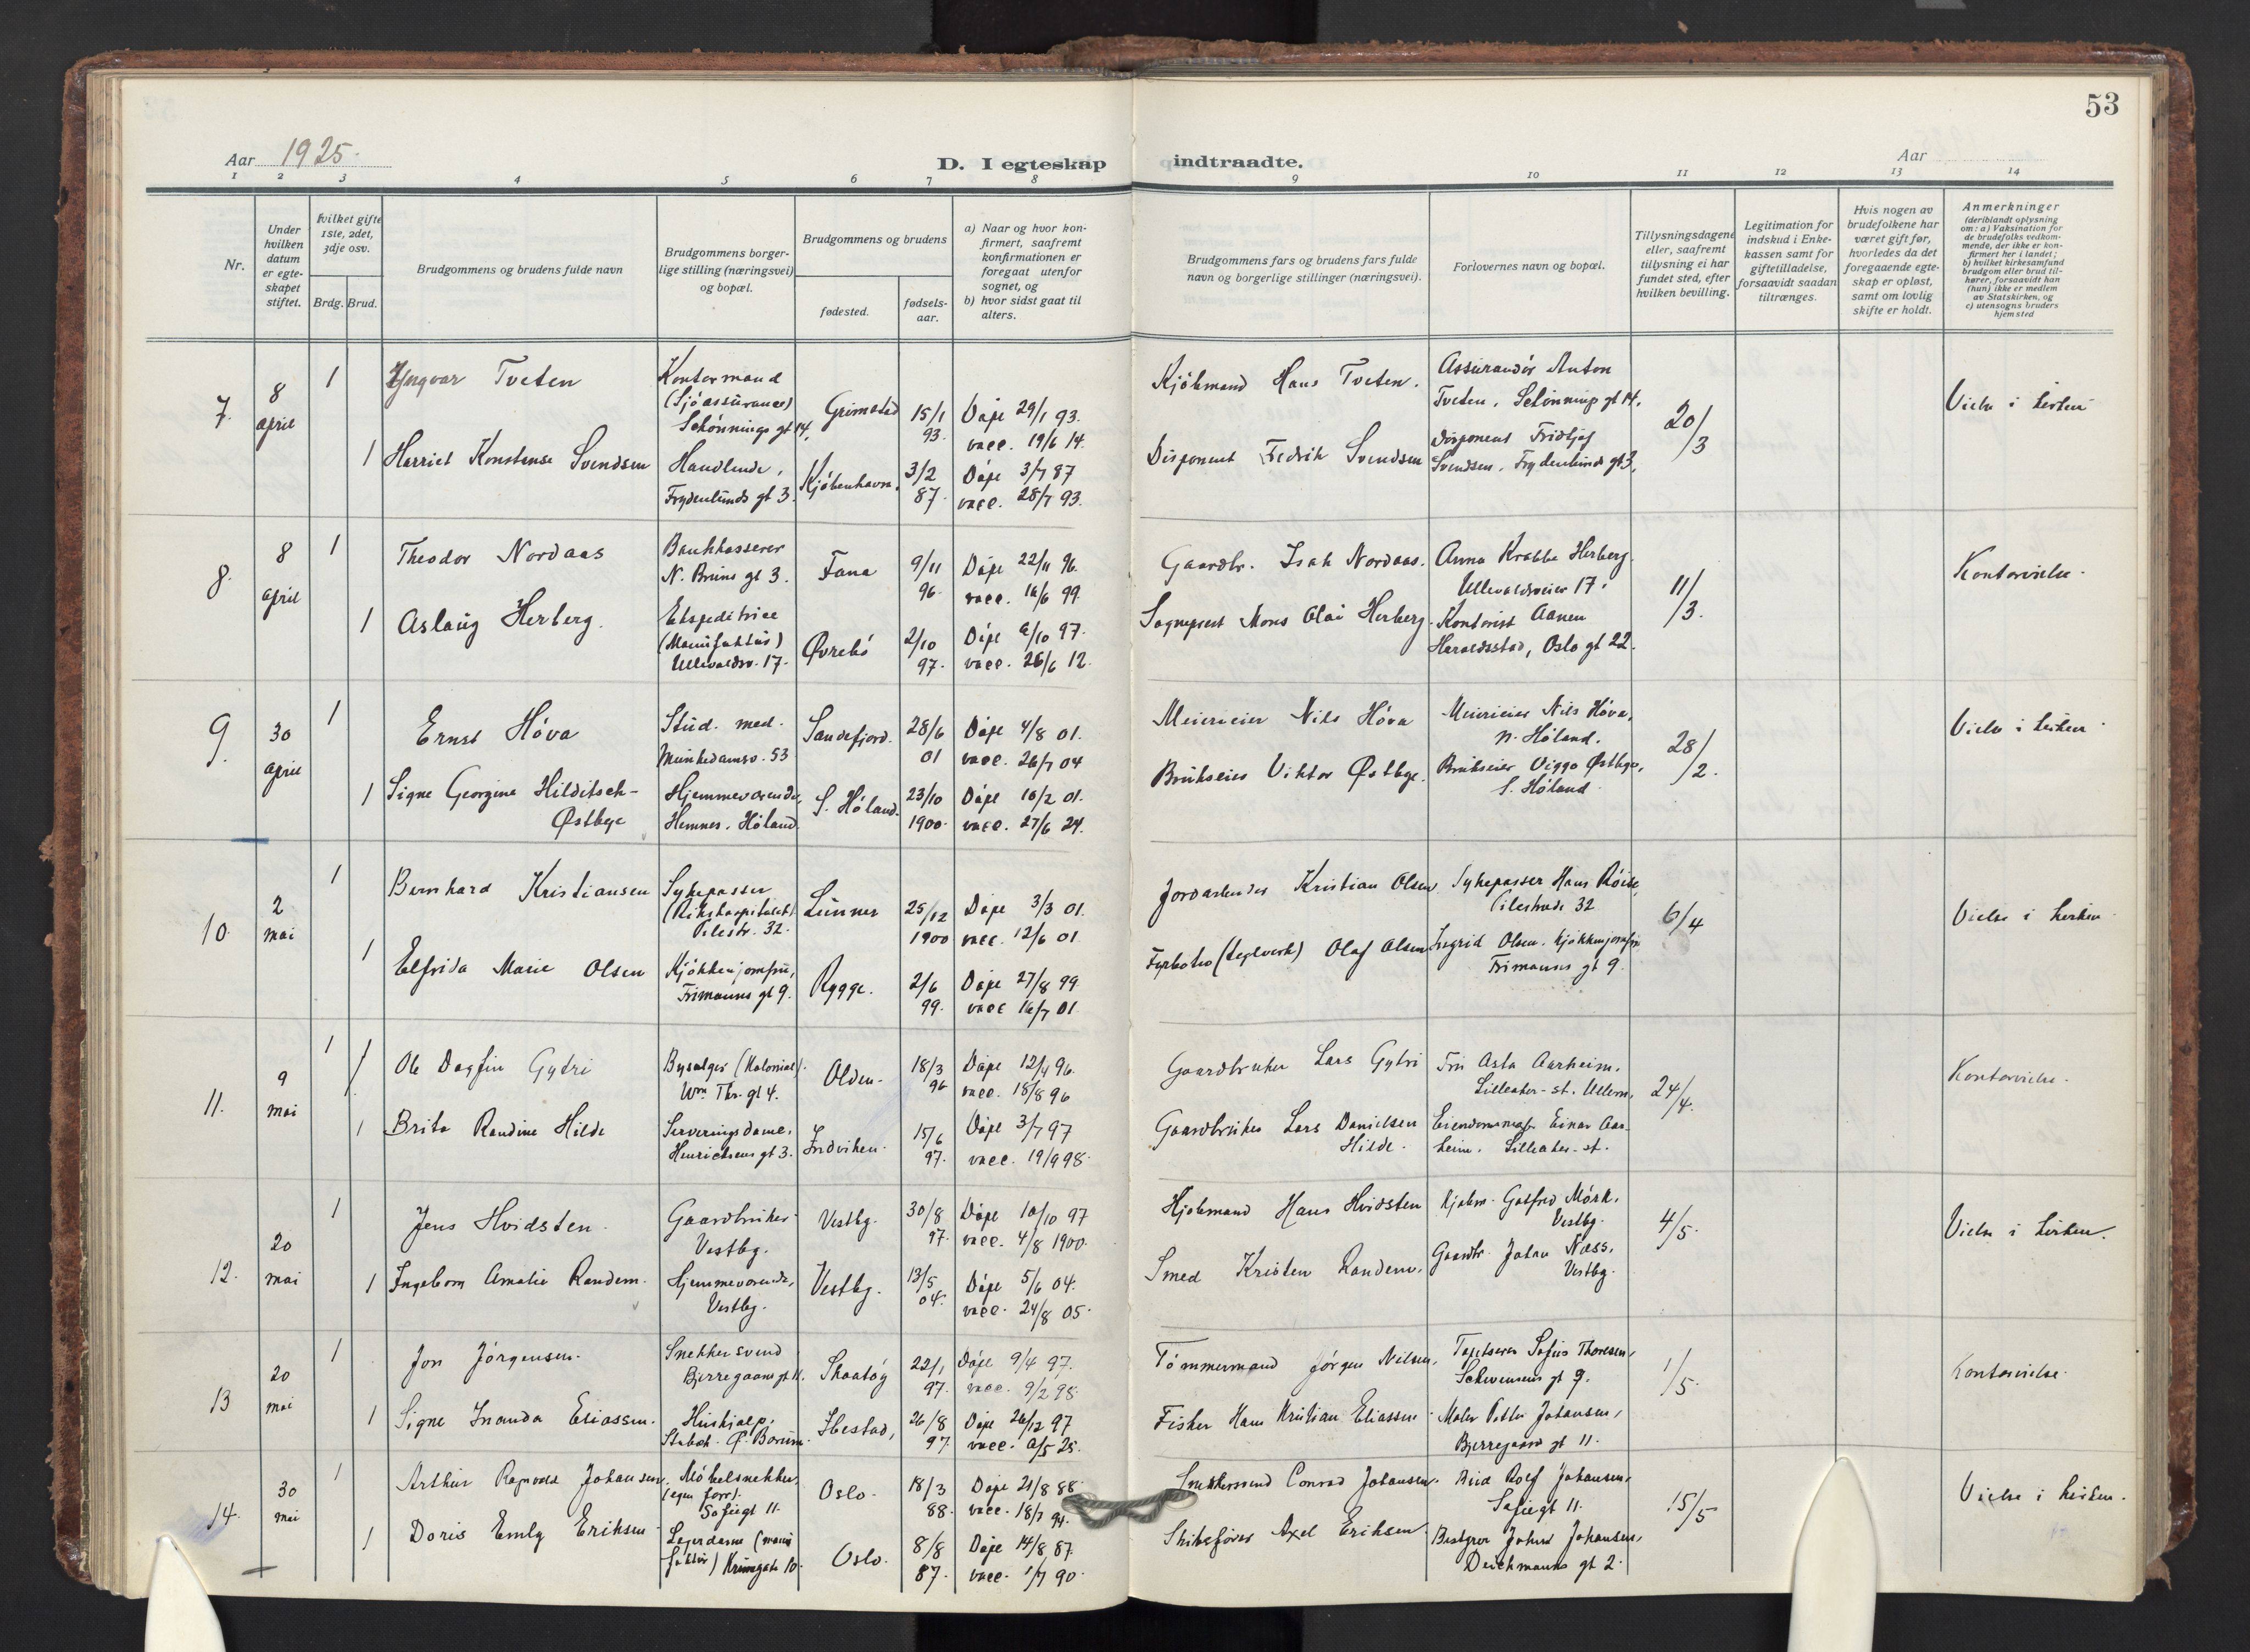 53
Aar 1925.
D. I egteskap indtraadte.
Aar
1 2 3 4 5 6 7 8 9 10 11 12 13 14
Nr.
Under
hvilken
datum
er egte-
skapet
stiftet.
Hvilket gifte
1ste, 2det,
3dje osv.
Brdg. Brud.
Brudgommens og brudens fulde navn
Brudgommens borger-
lige stilling (næringsvei)
og bopæl.
Brudgommens og brudens
fødested.
fødsels-
aar.
a) Naar og hvor kon-
firmert, saafremt
konfirmationen er
foregaat utenfor
sognet, og
b) hvor sidst gaat til
alters.
Brudgommens fars og brudens fars fulde
navn og borgerlige stillinger (næringsvei).
Forlovernes navn og bopæl.
Tillysningsdagene
eller, saafremt
tillysning ei har
fundet sted, efter
hvilken bevilling.
Legitimation for
indskud i Enke-
kassen samt for
giftetilladelse,
forsaavidt saadan
tiltrænges.
Hvis nogen av
brudefolkene har
været gift før,
hvorledes da det
foregaaende egte-
skap er opløst,
samt om lovlig
skifte er holdt.
Anmerkninger
(deriblandt oplysning
om: a) Vaksination for
de brudefolks vedkom-
mende, der ikke er kon-
firmert her i landet;
b) hvilket kirkesamfund
brudgom eller brud til-
hører, forsaavidt han
(hun) ikke er medlem
av Statskirken, og
c) utensogns bruders
hjemsted
7.
8
april
1
Yngvar Tveten
Kontormand
(Sjöassurance)
Schønnings gt 14.
Grimstad
15/1
93.
Døpt 29/1 93.
vacc. 19/6 14.
Kjöbmand Hans Tveten.
Assurandör Anton
Tveten, Schønnings gt 14.
20/3
Vielse i kirken
1
Harriet Konstanse Svendsen
Handlende,
Frydenlunds gt 3.
Kjöbenhavn.
3/2
87.
Døpt 3/7 87
vacc. 28/7 93.
Disponent Fredrik Svendsen
Disponent Fridtjof
Svendsen, Frydenlunds gt 3.
8.
8
april
1
Theodor Nordaas
Bankkasserer
N. Bruns gt 3.
Fana
9/11
96.
Døpt 22/11 96.
vacc. 16/6 99.
Gaardbr. Isak Nordaas.
Anna Krabbe Herberg.
Ullevaldsveien 17.
11/3.
Kontorvielse.
1
Aslaug Herberg.
Ekspeditrice
(Manufaktur)
Ullevaldsv. 17.
Øvrebö
2/10
97.
Døpt 9/10 97.
vacc. 26/6 12.
Sogneprest Mons Olai Herberg.
Kontorist Aanen
Haraldsstad, Oslo gt 22.
9.
30
april
1
Ernst Höva
Stud. med.
Munkedamsv. 53
Sandefjord.
28/6
01
Døpt 4/8 01.
vacc. 26/7 04
Meierieier Nils Höva
Meierieier Nils Höva,
N. Höland.
28/2.
Vielse i kirken
1
Signe Georgine Hilditsch-
Østbye
Hjemmeværende,
Hemnes, Höland.
S. Höland.
23/10
1900.
Døpt 10/2 01.
vacc. 27/6 24.
Brukseier Viktor Østbye.
Brukseier Viggo Østbye,
S. Höland.
10.
2
mai
1
Bernhard Kristiansen
Sykepasser
(Rikshospitalet).
Pilestr. 32.
Lunner
25/12
1900
Døpt 3/3 01.
vacc. 12/6 01
Jordarbeider Kristian Olsen.
Sykepasser Hans Röise,
Pilestrede 32
6/4
Vielse i kirken
1
Elfrida Marie Olsen
Kjökkenjomfru,
Frimanns gt 9.
Rygge.
2/6
99.
Døpt 27/8 99.
vacc 16/7 01.
Fyrböter (teglverk) Olaf Olsen
Ingrid Olsen. kjökkenjomfru
Frimanns gt 9.
11.
9
mai
1
Ole Dagfin Gytri
Bysælger (Kolonial).
Wm Thr. gt 4.
Olden.
18/3
96
Døpt 12/4 96.
vacc. 18/8 96
Gaardbruker Lars Gytri
Fru Asta Aarheim,
Lilleaker-st. Ullern.
24/4.
Kontorvielse.
1
Brita Randine Hilde
Serveringsdame,
Henrichsens gt 3.
Indviken.
15/6
97.
Døpt 3/7 97
vacc. 19/9 98.
Gaardbruker Lars Danielsen
Hilde.
Eiendomsmægl. Einar Aar-
heim. Lilleaker-st.
12.
20
mai
1
Jens Hvidsten.
Gaardbruker
Vestby.
Vestby.
30/8
97.
Døpt 10/10 97
vacc. 4/8 1900.
Kjøbmand Hans Hvidsten
Kjøbm. Gotfred Mörk,
Vestby.
4/5.
Vielse i kirken.
1
Ingeborg Amalie Randem.
Hjemmeværende,
Vestby.
Vestby.
13/5
04.
Døpt 5/6 04.
vacc. 24/8 05.
Smed Kristen Randem.
Gaardbr. Johan Næss,
Vestby.
13
20
mai
1
Jon Jörgensen.
Snekkersvend
Bjerregaards gt 11.
Skaatöy
22/1
97.
Døpt 9/4 97.
vacc. 9/2 98.
Tömmermand Jörgen Nilsen.
Tapetserer Sofus Thoresen,
Schwensens gt 9.
1/5.
Kontorvielse.
1
Signe Inanda Eliassen.
Hushjælp.
Stabæk. Ø. Bærum.
Ibestad,
26/8
97.
Døpt 26/12 97
vacc. 9/5 25.
Fisker Hans Kristian Eliassen.
Maler Petter Johansen,
Bjerregaard gt 11.
14.
30
mai
1
Arthur Ragnvald Johansen.
Møbelsnekker
(egen forr).
Sofiegt 11.
Oslo.
18/3
88.
Døpt 21/8 88.
vacc. 18/7 94.
Snekkersvend Conrad Johansen.
Rolf Johansen,
Sofiegt 11.
15/5
Vielse i kirken.
1
Doris Emly Eriksen
Lagerdame (manu
faktur) Kronsgate 10.
Oslo.
8/8
87.
Døpt 14/8 87.
vacc. 1/7 90.
Skibsfører Axel Eriksen
Johansen,
Deichmanns gt 2.